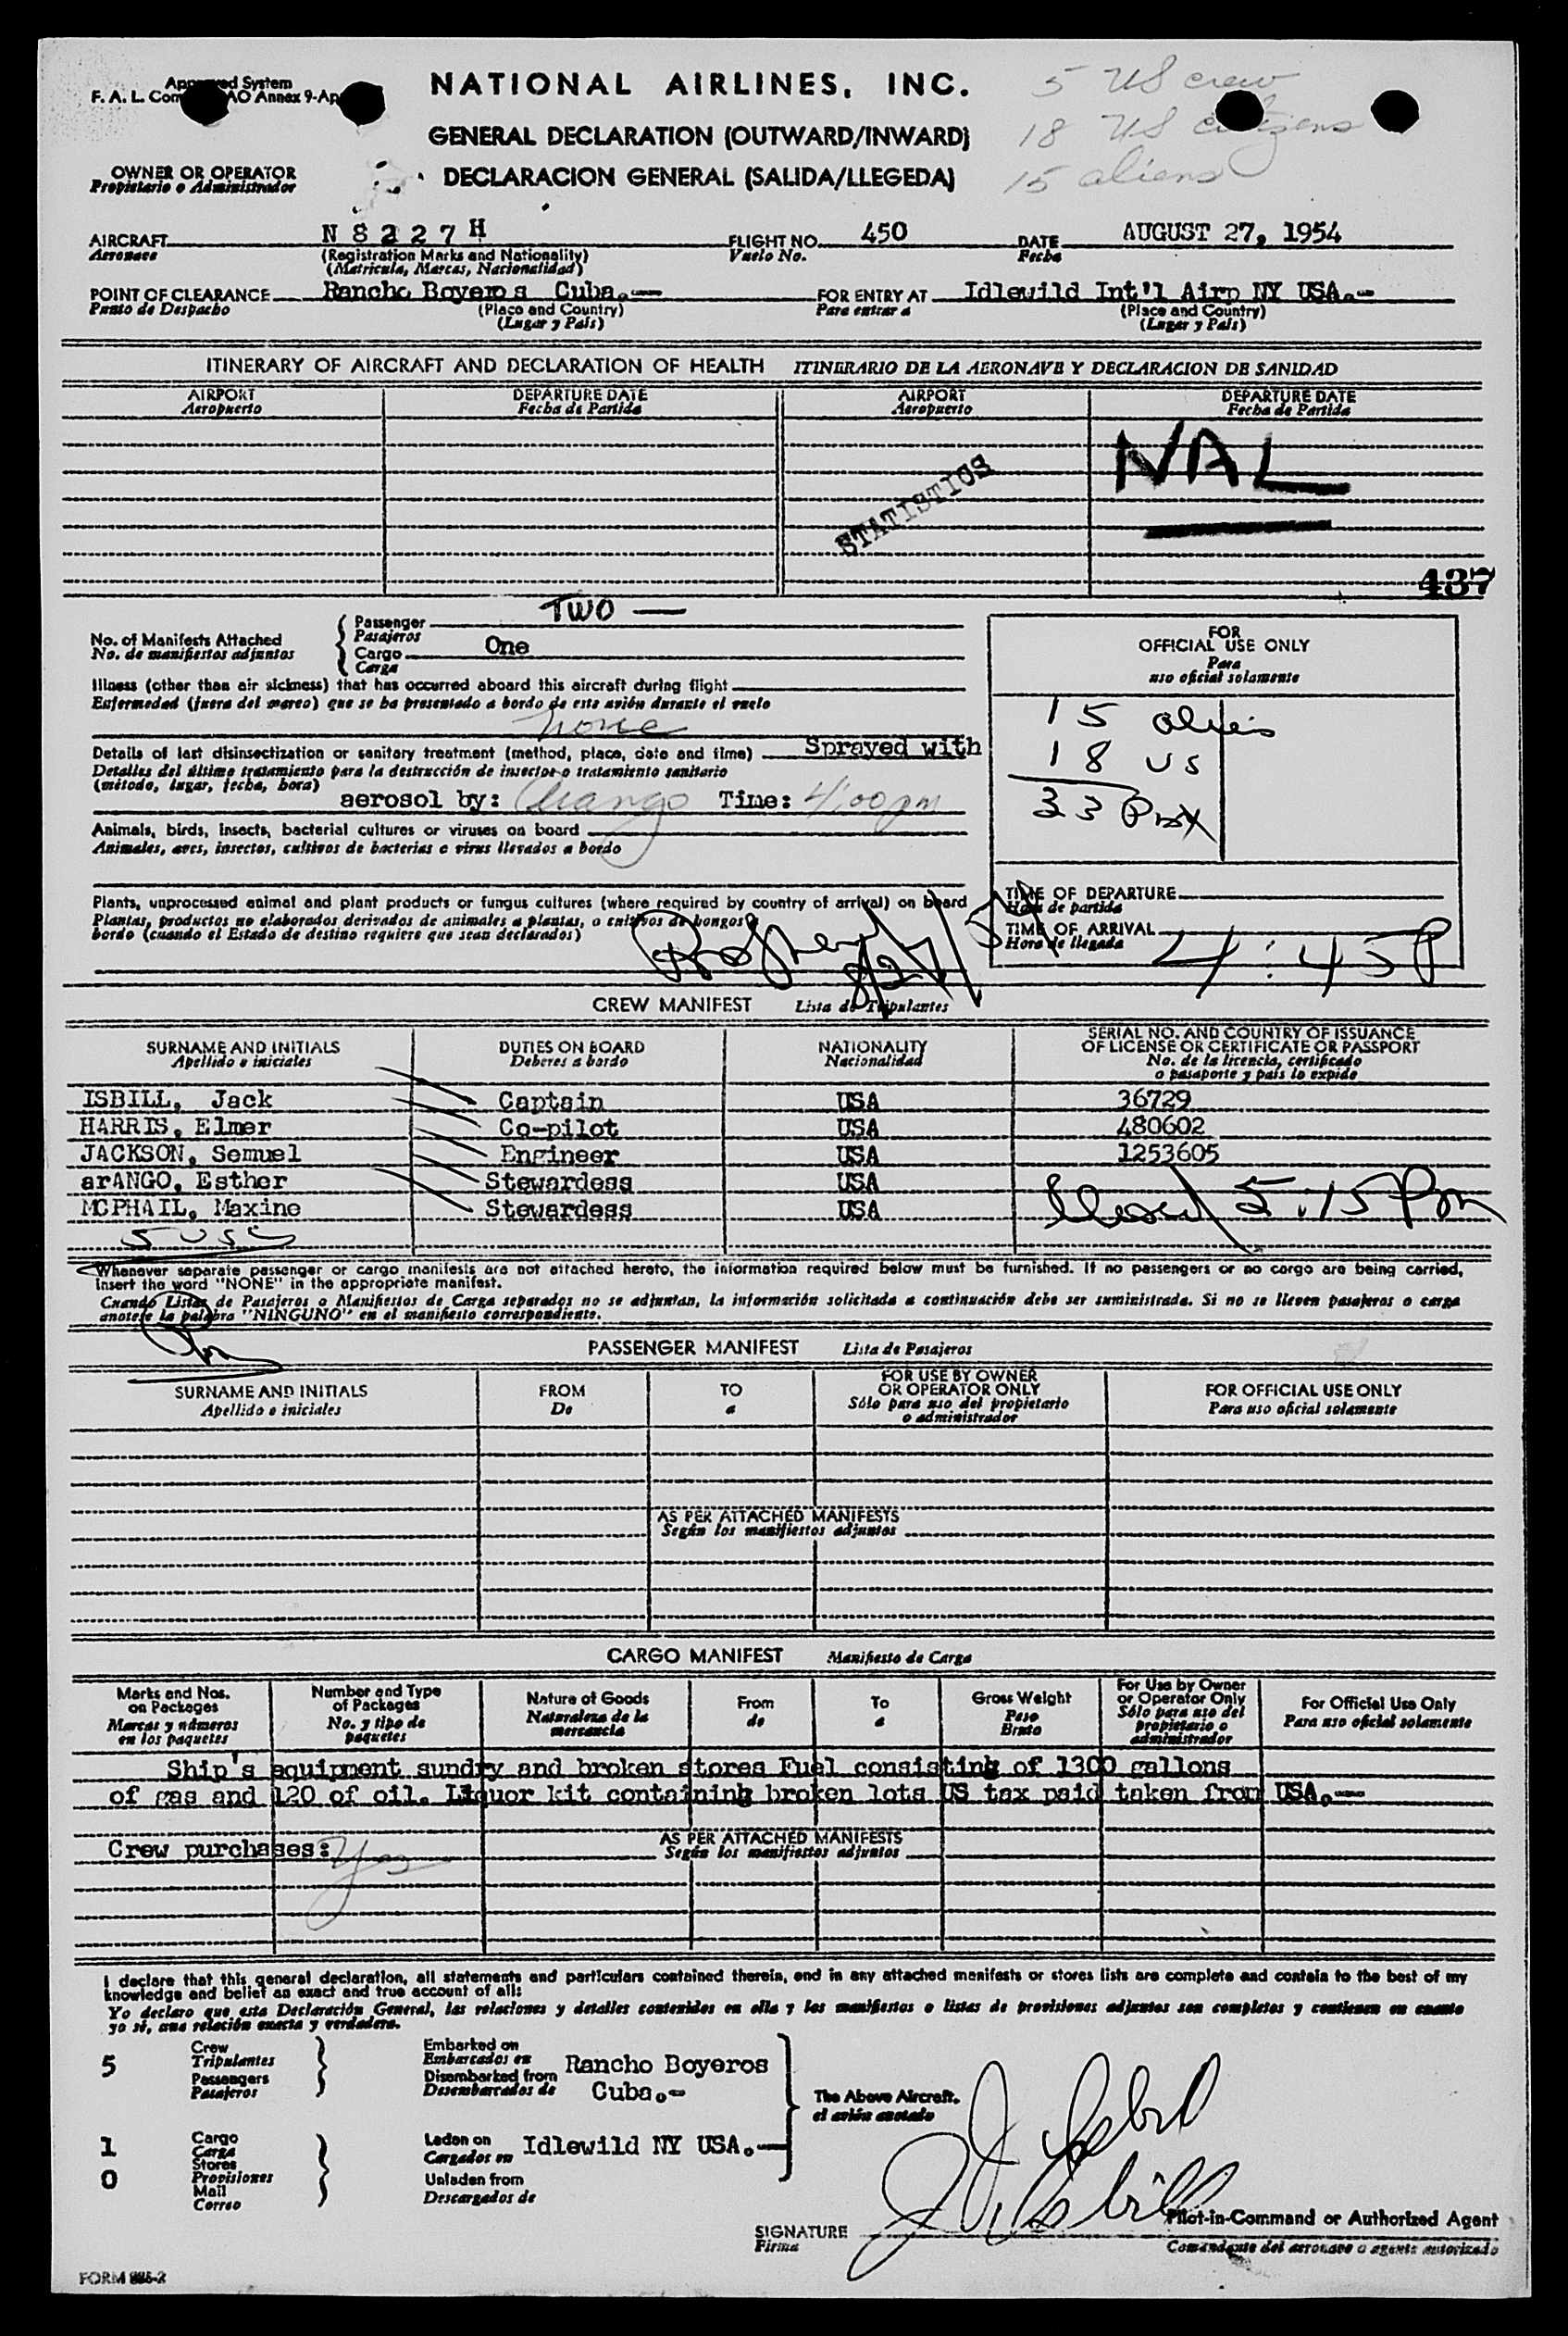 Approved System
F. A. L. Com AO Annex 9-Ap
NATIONAL AIRLINES, INC.
5 US crew
18 US citizens
15 aliens
GENERAL DECLARATION (OUTWARD/INWARD)
DECLARACION GENERAL (SALIDA/LLEGEDA)
OWNER OR OPERATOR
Propietario o Administrador
AIRCRAFT N 8 2 2 7 H FLIGHT NO. 450 DATE AUGUST 27, 1954
Aeronave (Registration Marks and Nationality) Vuelo No. Fecha
(Matricula, Marcas, Nacionalidad)
POINT OF CLEARANCE Rancho Boyeros Cuba.- FOR ENTRY AT Idlewild Int'l Airp NY USA.-
Punto de Despacho (Place and Country) Para entrar a (Place and Country)
(Lugar y País) (Lugar y País)
ITINERARY OF AIRCRAFT AND DECLARATION OF HEALTH ITINERARIO DE LA AERONAVE Y DECLARACION DE SANIDAD
AIRPORT DEPARTURE DATE AIRPORT DEPARTURE DATE
Aeropuerto Fecha de Partida Aeropuerto Fecha de Partida
NAL
STATISTICS
437
No. of Manifests Attached Passenger TWO —
No. de manifiestos adjuntos Pasajeros
Cargo One
Carga
FOR
OFFICIAL USE ONLY
Para
uso oficial solamente
15 aliens
18 US
33 Pax
Illness (other than air sickness) that has occurred aboard this aircraft during flight
Enfermedad (fuera del mareo) que se ha presentado a bordo de este avión durante el vuelo
none
Details of last disinsectization or sanitary treatment (method, place, date and time) Sprayed with
Detalles del último tratamiento para la destrucción de insectos o tratamiento sanitario
(método, lugar, fecha, hora) aerosol by: Arango Time: 4:00 pm
Animals, birds, insects, bacterial cultures or viruses on board
Animales, aves, insectos, cultivos de bacterias o virus llevados a bordo
Plants, unprocessed animal and plant products or fungus cultures (where required by country of arrival) on board
Plantas, productos no elaborados derivados de animales o plantas, o cultivos de hongos a
bordo (cuando el Estado de destino requiere que sean declarados)
8/27/54
TIME OF DEPARTURE
Hora de partida
TIME OF ARRIVAL 4:45P
Hora de llegada
CREW MANIFEST Lista de Tripulantes
SURNAME AND INITIALS DUTIES ON BOARD NATIONALITY SERIAL NO. AND COUNTRY OF ISSUANCE
OF LICENSE OR CERTIFICATE OR PASSPORT
Apellido e iniciales Deberes a bordo Nacionalidad No. de la licencia, certificado
o pasaporte y país lo expide
ISBILL, Jack Captain USA 36729
HARRIS, Elmer Co-pilot USA 480602
JACKSON, Semuel Engineer USA 1253605
arANGO, Esther Stewardess USA
MCPHAIL, Maxine Stewardess USA
5 USC
5:15 Pm
Whenever separate passenger or cargo manifests are not attached hereto, the information required below must be furnished. If no passengers or no cargo are being carried,
insert the word "NONE" in the appropriate manifest.
Cuando Listas de Pasajeros o Manifiestos de Carga separados no se adjuntan, la información solicitada a continuación debe ser suministrada. Si no se lleven pasajeros o carga
anótese la palabra "NINGUNO" en el manifiesto correspondiente.
PASSENGER MANIFEST Lista de Pasajeros
SURNAME AND INITIALS FROM TO FOR USE BY OWNER
OR OPERATOR ONLY FOR OFFICIAL USE ONLY
Apellido e iniciales De a Sólo para uso del propietario
o administrador Para uso oficial solamente
AS PER ATTACHED MANIFESTS
Según los manifiestos adjuntos
CARGO MANIFEST Manifiesto de Carga
Marks and Nos.
on Packages
Marcas y números
en los paquetes
Number and Type
of Packages
No. y tipo de
paquetes
Nature of Goods
Naturaleza de la
mercancia
From
de
To
a
Gross Weight
Peso
Bruto
For Use by Owner
or Operator Only
Sólo para uso del
propietario o
administrador
For Official Use Only
Para uso oficial solamente
Ship's equipment sundry and broken stores Fuel consisting of 1300 gallons
of gas and 120 of oil. Liquor kit containing broken lots US tax paid taken from USA.-
AS PER ATTACHED MANIFESTS
Crew purchases: Yes Según los manifiestos adjuntos
I declare that this general declaration, all statements and particulars contained therein, and in any attached manifests or stores lists are complete and contain to the best of my
knowledge and belief an exact and true account of all:
Yo declaro que esta Declaración General, las relaciones y detalles contenidos en ella y los manifiestos o listas de provisiones adjuntos son completos y contienen en cuanto
yo sé, una relación exacta y verdadera.
5 Crew
Tripulantes
Passengers
Pasajeros
Embarked on
Embarcados en Rancho Boyeros
Disembarked from
Desembarcados de Cuba.-
The Above Aircraft.
el avión anotado
1 Cargo
Carga
Stores
0 Provisiones
Mail
Correo
Laden on
Cargados en Idlewild NY USA.-
Unladen from
Descargados de
J. Isbill
J. Isbill
Pilot-in-Command or Authorized Agent
SIGNATURE
Firma Comandante del aeronave o agente autorizado
FORM 885-2